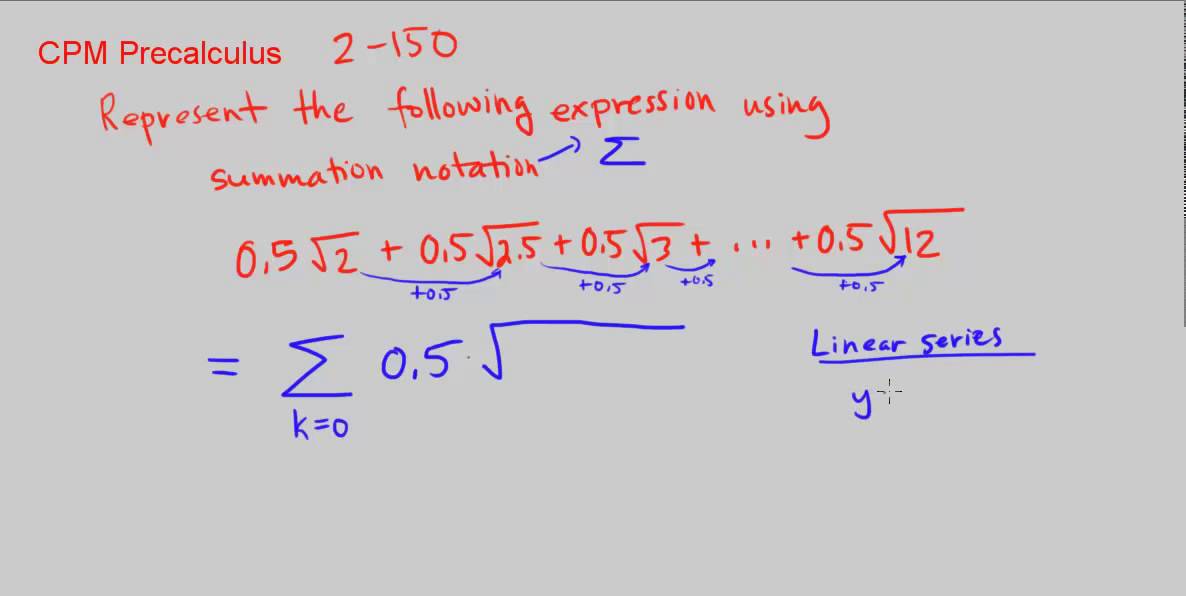 CPM Precalculus 2-150
Represent the following expression using
summation notation → Σ
0.5√2 + 0.5√2.5 + 0.5√3 + ... + 0.5√12
+0.5 +0.5 +0.5 +0.5
= Σ 0.5·√
k=0
Linear series
y